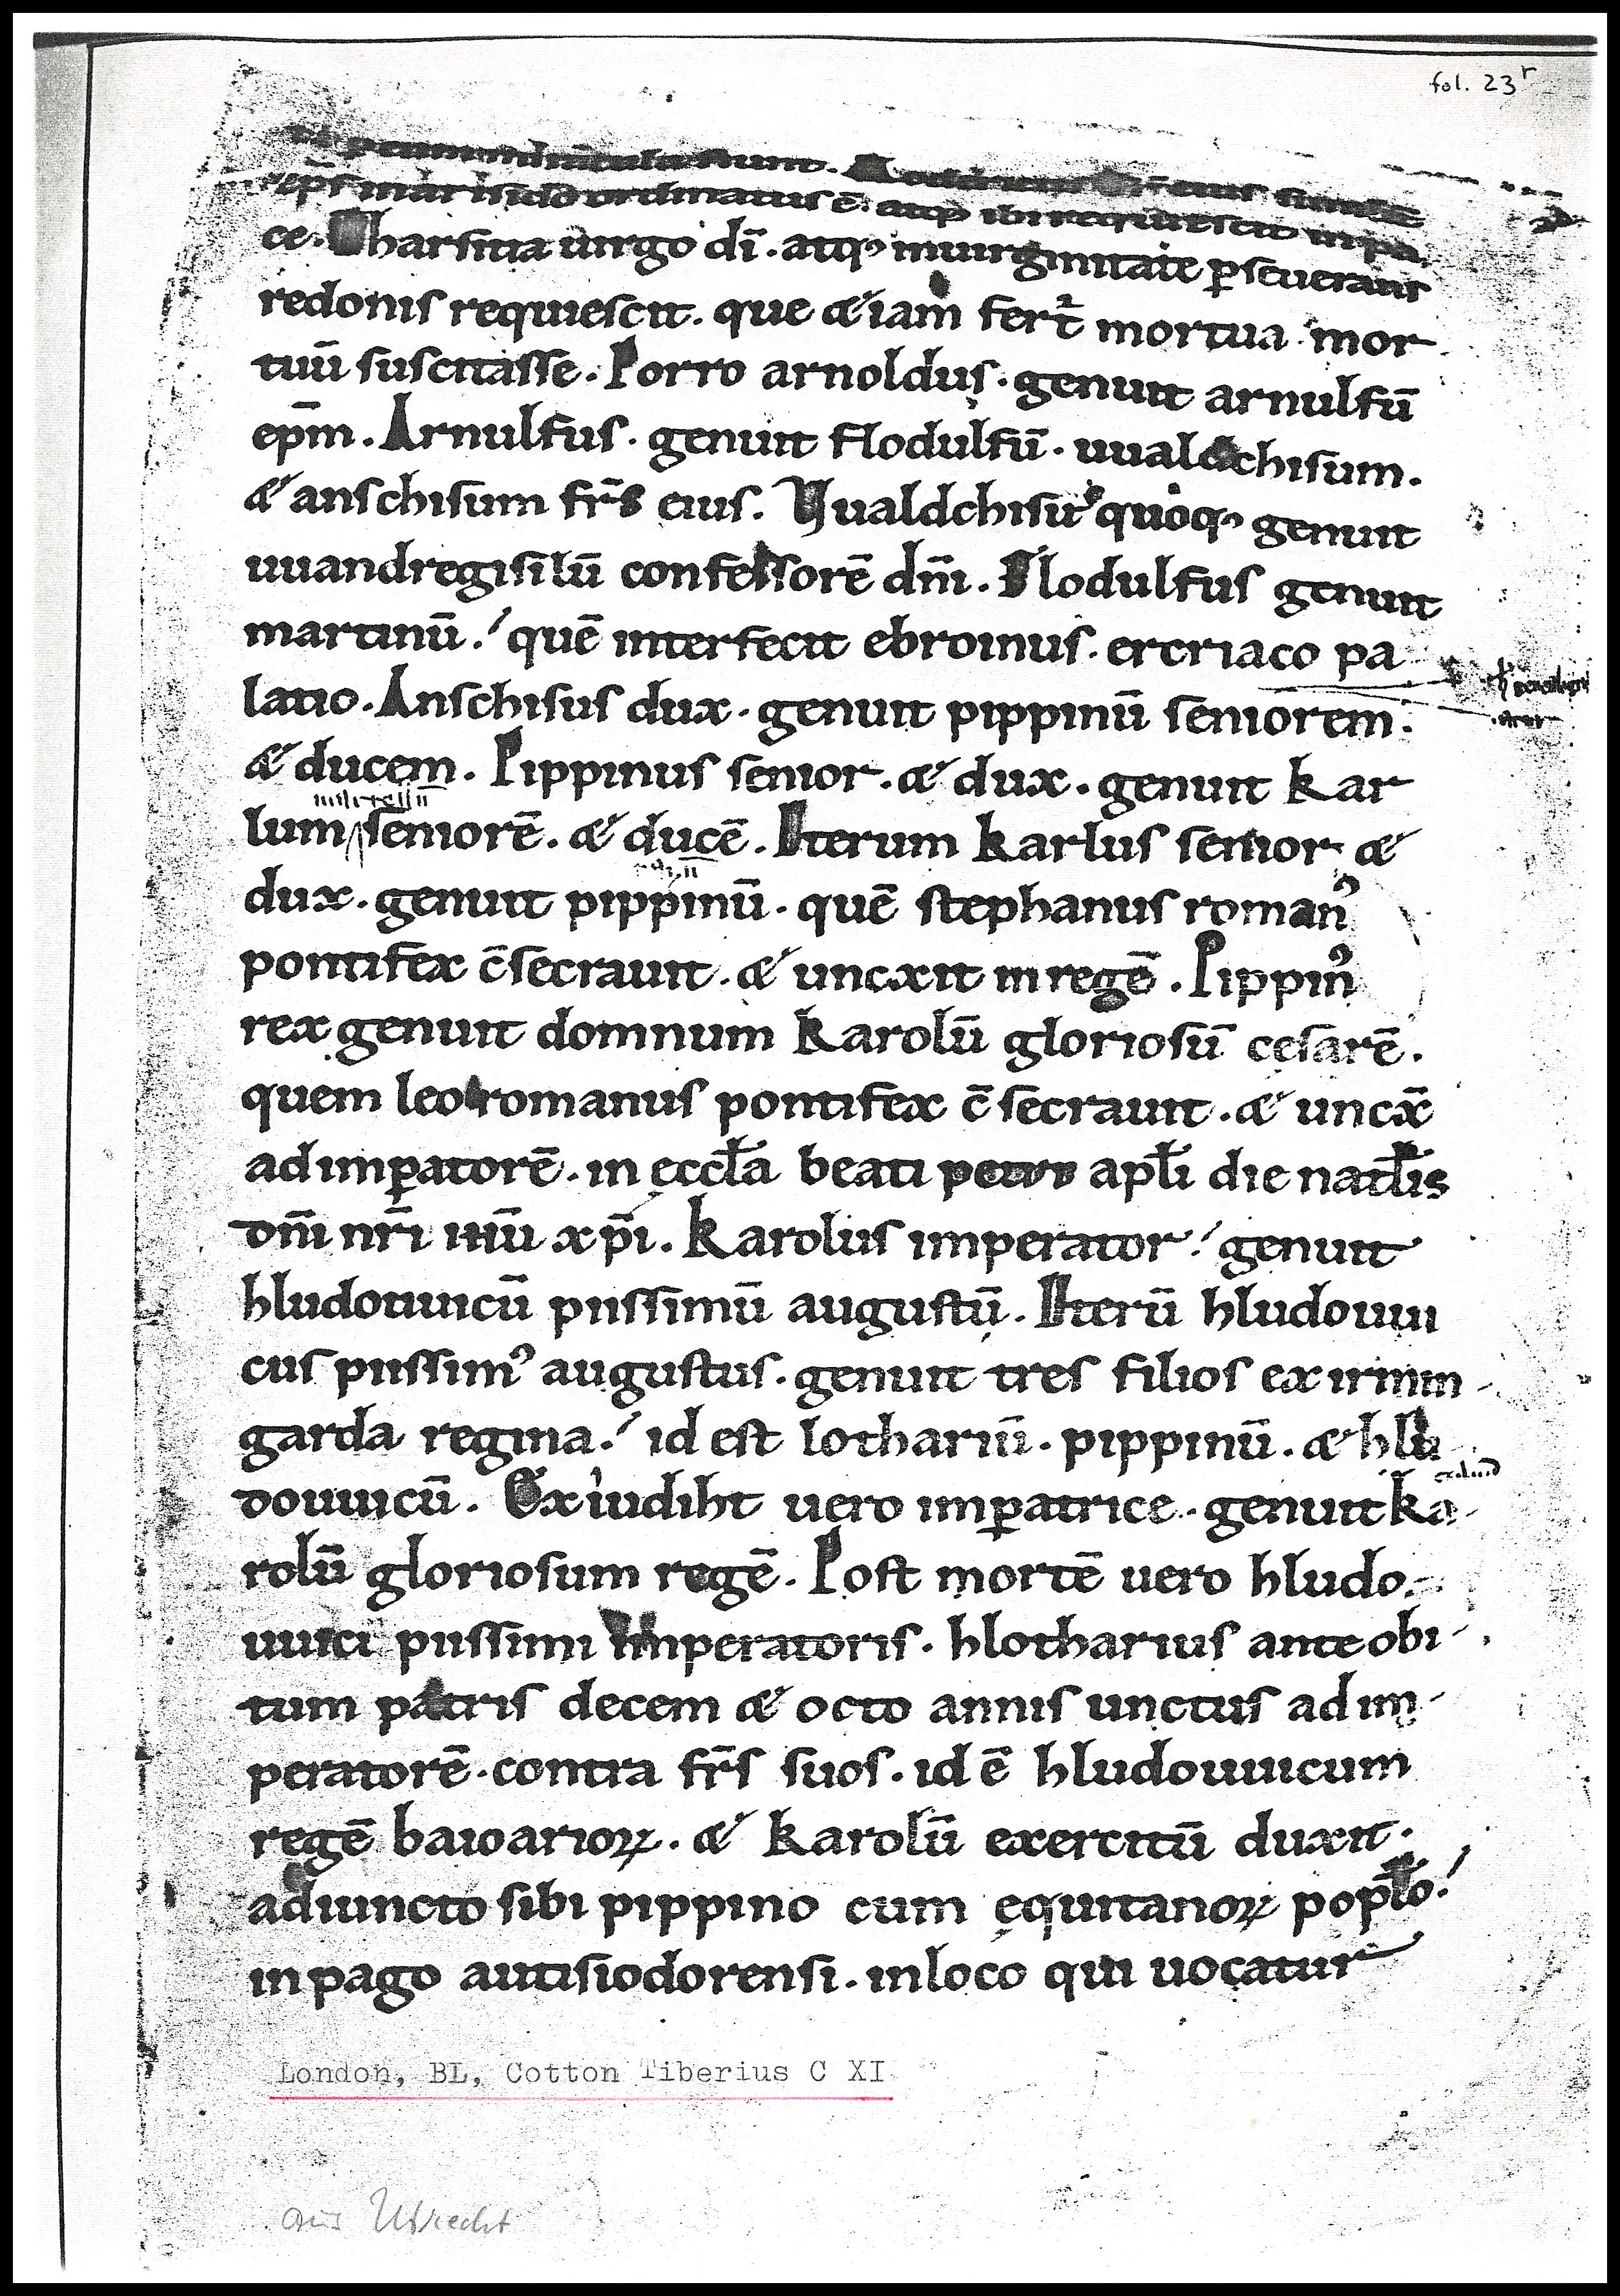 fol. 23ʳ
ep̄s ordinatus ē. atq; ibi requiescit in pa
ce. Tharsitia uirgo dī. atq; in uirginitate ꝑseuerans
redonis requiescit. que & iam fert᷑ mortua mor
tuū suscitasse. Porro arnoldus. genuit arnulfū
ep̄m. Arnulfus. genuit flodulfū. uualdchisum.
& anschisum fr̄s eius. Uualdchisus quoq; genuit
uuandregisilū confessorē dn̄i. Flodulfus genuit
martinū. quē interfecit ebroinus. ercriaco pa
latio. Anschisus dux. genuit pippinū seniorem.
& ducem. Pippinus senior. & dux. genuit kar
lum seniorē. & ducē. Iterum karlus senior. &
dux. genuit pippinū. quē stephanus roman᾽
pontifex c̄secrauit. & uncxit in regē. Pippin᾽
rex genuit domnum karolū gloriosū cesarē.
quem leo romanus pontifex c̄secrauit. & uncx̄
ad imꝑatorē. in ęccl̄a beati petri apl̄i die natl̄is
dn̄i nr̄i ihū xp̄i. karolus imperator. genuit
hludouuicū piissimū augustū. Iterū hludouui
cus piissim᾽ augustus. genuit tres filios ex irmin
garda regina. id est lothariū. pippinū. & hlu
douuicū. Ex iudiht uero imꝑatrice. genuit ka
rolū gloriosum regē. Post mortē uero hludo
uuici piissimi imperatoris. hlotharius ante obi
tum patris decem & octo annis unctus ad im
peratorē. contra fr̄s suos. id ē hludouuicum
regē baioarioꝝ. & karolū exercitū duxit.
adiuncto sibi pippino cum ęquitanoꝝ popl̄o.
in pago autisiodorensi. in loco qui uocatur
London, BL, Cotton Tiberius C XI
aus Utrecht